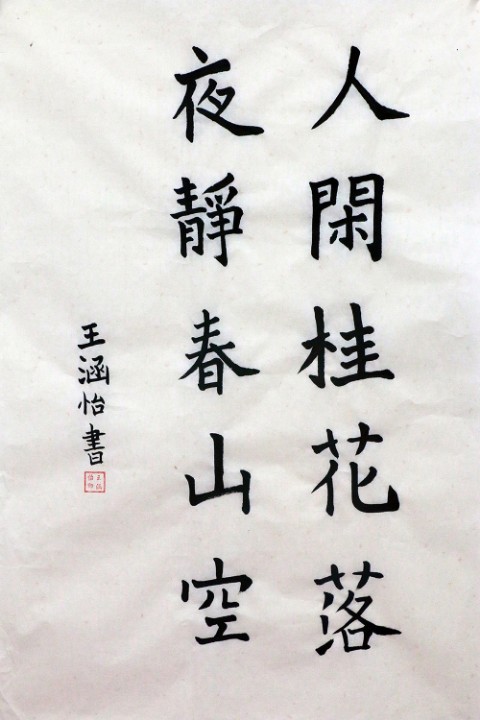 人閑桂花落
夜靜春山空
王涵怡書